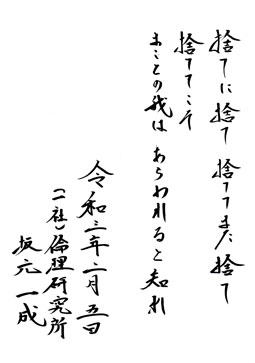 捨てに捨て 捨ててまた捨て
捨ててこそ
まことの我は あらわれると知れ
令和三年二月五日
(一社)倫理研究所
坂元一成